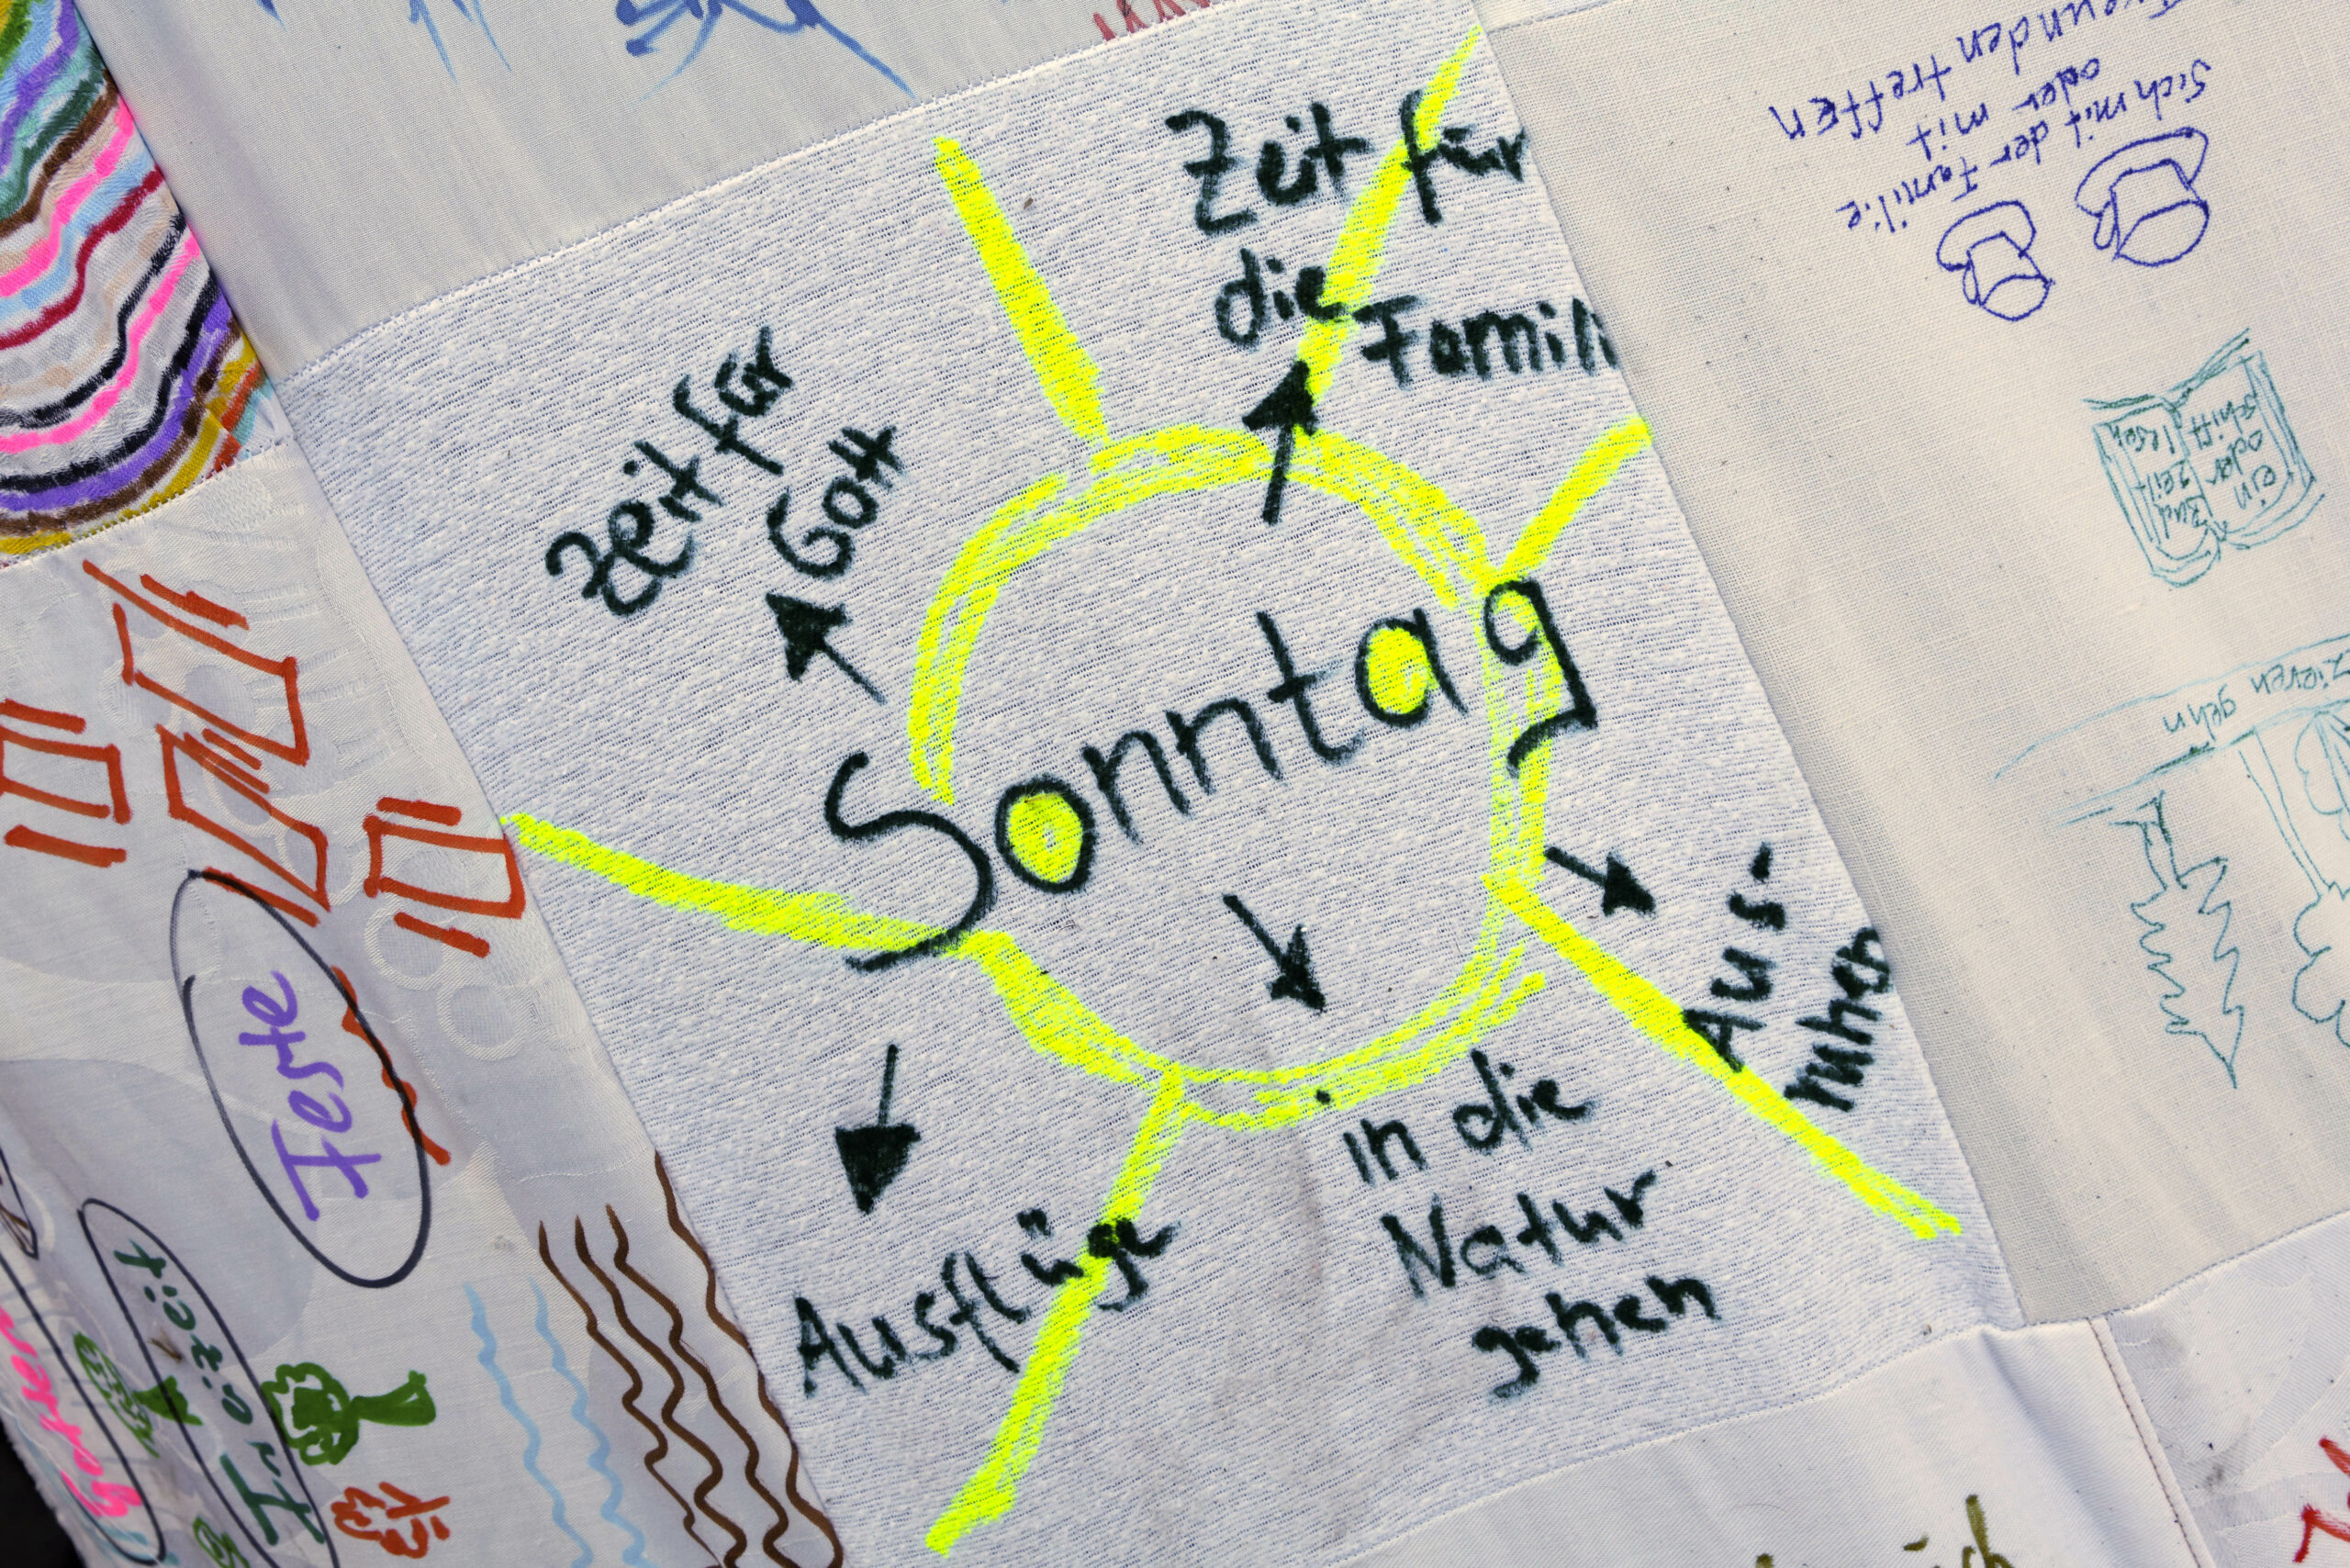 Zeit für
die Famili
Zeit für
Gott
Sonntag
Aus-
ruhen
in die
Natur
gehen
Ausflüge
Sich mit der Familie
oder mit
Freunden treffen
ein
oder
schrift
Buch
zeit
lesen
zieren gehn
Feste
Freizeit